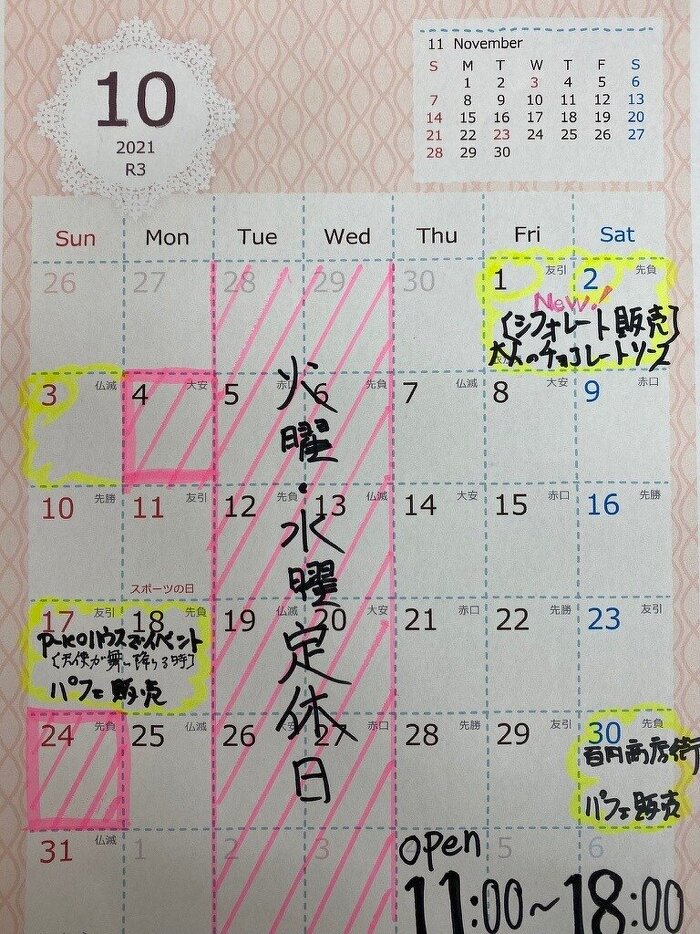 10
2021
R3
11 November
S M T W T F S
1 2 3 4 5 6
7 8 9 10 11 12 13
14 15 16 17 18 19 20
21 22 23 24 25 26 27
28 29 30
Sun Mon Tue Wed Thu Fri Sat
26 27 28 29 30 1 友引 2 先負
New!
[シフォレート販売]
大人のチョコレートソース
3 仏滅 4 大安 5 赤口 6 先負 7 仏滅 8 大安 9 赤口
10 先勝 11 友引 12 先負 13 仏滅 14 大安 15 赤口 16 先勝
スポーツの日
17 友引 18 先負 19 仏滅 20 大安 21 赤口 22 先勝 23 友引
P-KOハウスでイベント
[天使が舞い降りる時]
パフェ販売
24 先負 25 仏滅 26 大安 27 赤口 28 先勝 29 友引 30 先負
百円商店街
パフェ販売
31 仏滅 1 2 3 5 6
火曜・水曜定休日
open
11:00~18:00